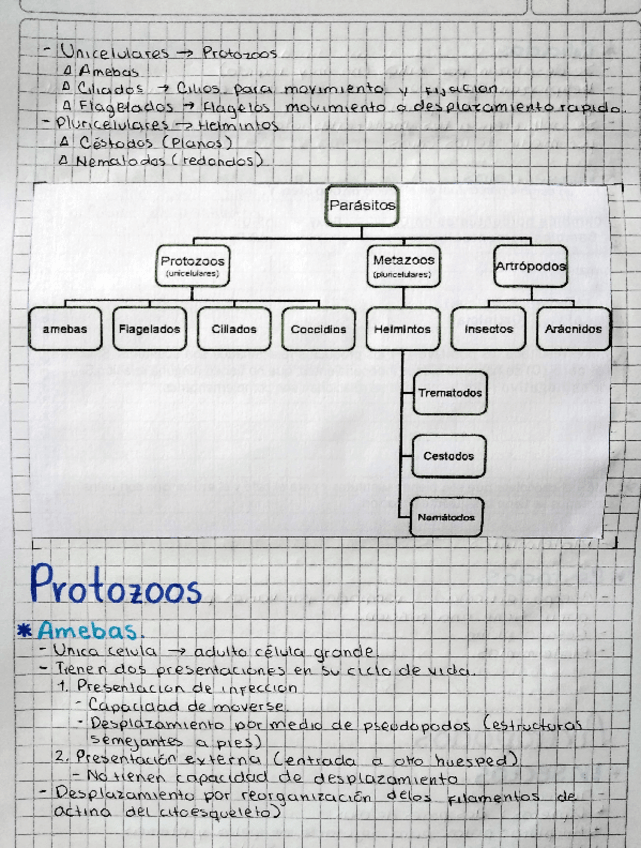 - Unicelulares → Protozoos
Δ Amebas
Δ Ciliados → Cilios para movimiento y fijación
Δ Flagelados → Flagelos movimiento o desplazamiento rapido.
- Pluricelulares → Helmintos
Δ Céstodos (Planos)
Δ Nematodos (redondos)
Parásitos
Protozoos Metazoos Artrópodos
(unicelulares) (pluricelulares)
amebas Flagelados Ciliados Coccidios Helmintos Insectos Arácnidos
Trematodos
Cestodos
Nemátodos
Protozoos
* Amebas.
- Unica celula → adulto célula grande.
- Tienen dos presentaciones en su ciclo de vida.
1. Presentacion de infección
- Capacidad de moverse.
- Desplazamiento por medio de pseudopodos (estructuras
semejantes a pies)
2. Presentación externa (entrada a otro huesped)
- No tienen capacidad de desplazamiento
- Desplazamiento por reorganización delos filamentos de
actina del citoesqueleto)